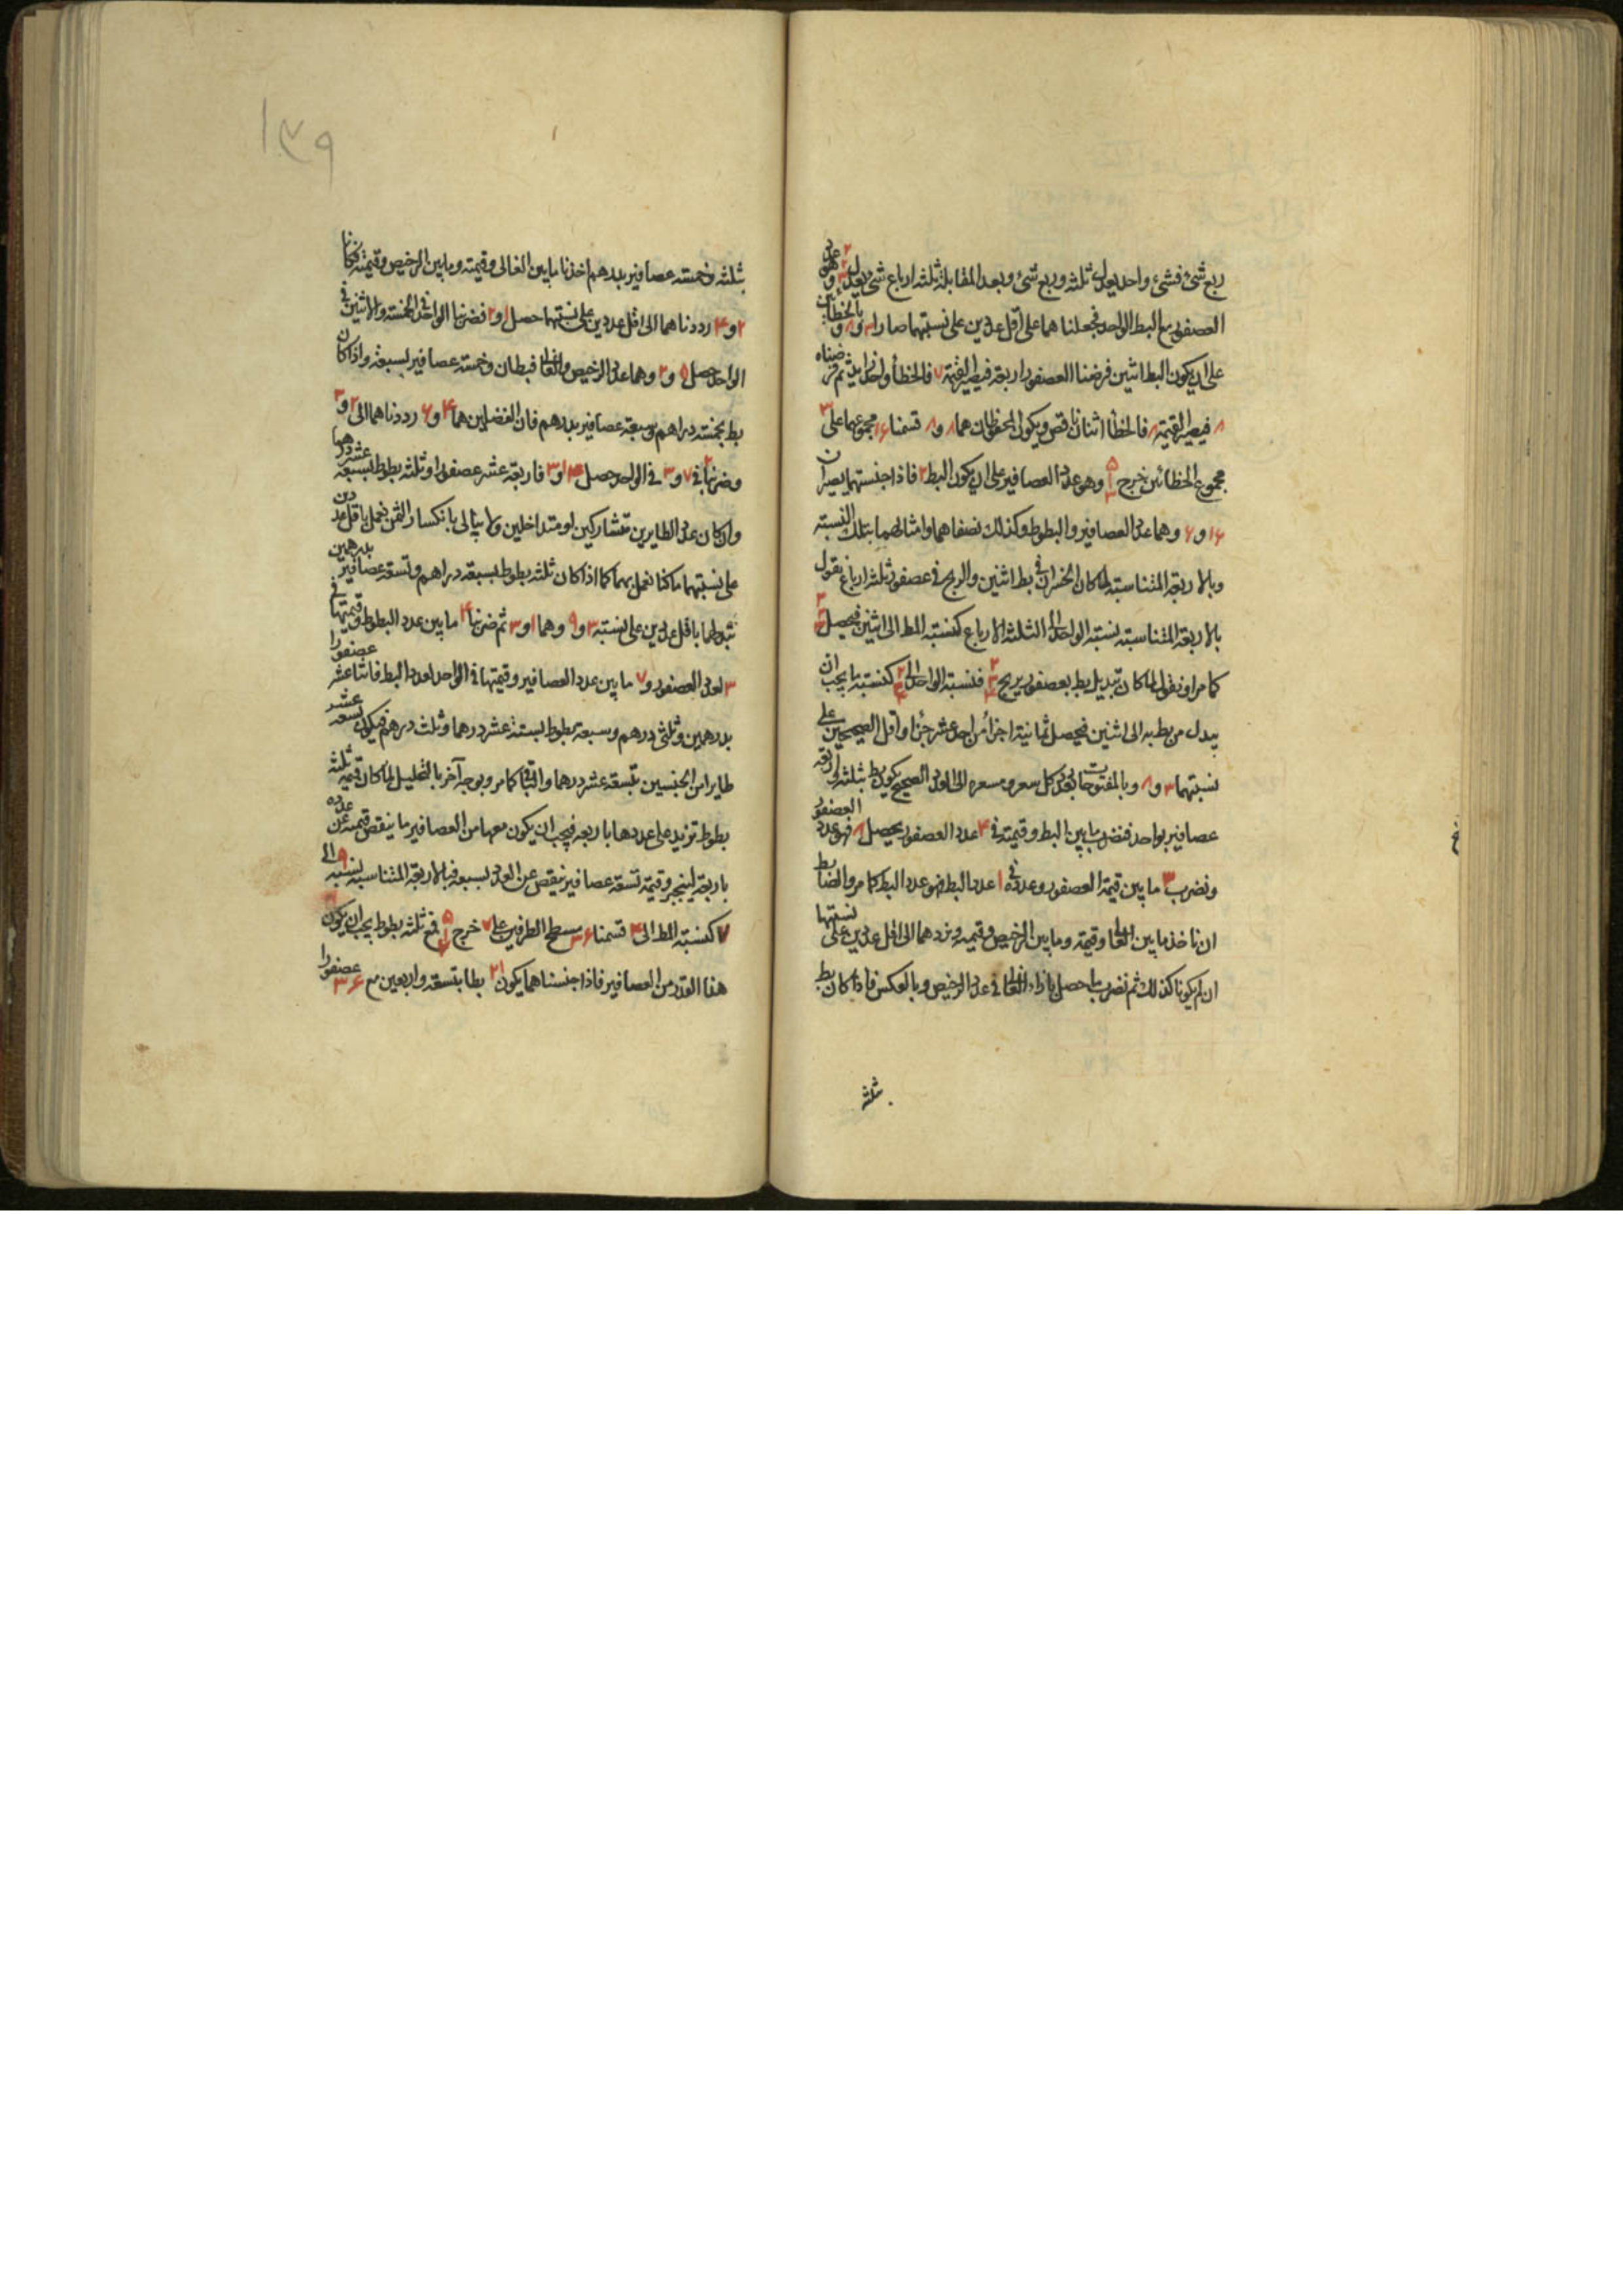 ربع شئ فشئ واحد يعدل ثلثه وربع شئ وبعد المقابلة ثلثه ارباع شئ يعدل ٢ وهو عدد
العصفور مع البط الواحد فجعلنا هما على اقل عددين على نسبتهما صارا ٣ و ٨ وبالخطائين
على ان يكون البط اثنين فرضنا العصفور اربعة فيصير القيمة ٧ فالخطأ واحد زايد ثم فرضناه
٨ فيصير القيمة ٨ فالخطأ اثنان ناقص ويكون المحفوظان هما ٨ و ٨ قسمنا ١٦ مجموعهما على ٣
مجموع الخطائين خرج ٥ وهو عدد العصافير على ان يكون البط ٢ فاذا جنستهما يصيران
١٦ و ٦ وهما عدد العصافير والبطوط وكذلك نصفاهما وامثالهما بتلك النسبته
وبالاربعة المتناسبة لما كان الخسران فى بط اثنين والربح فى عصفور ثلثه ارباع نقول
بالاربعة المتناسبة نسبته الواحد الى الثلثه الارباع كنسبته المط الى اثنين فيحصل
كما مر او نقول لما كان تبديل بط بعصفور يربح فنسبته الواحد الى كنسبته ما يجب ان
يبدل من بط به الى اثنين فيحصل ثمانية اجزاء من احد عشر جزأ واقل الصحيحين على
نسبتهما ٣ و ٨ وبالمفتوحات بعد كل سعر ومسعره الى العدد الصحيح يكون بط بثلثه واربعة
عصافير بواحد فنضرب ما بين البط وقيمته فى ٤ عدد العصفور يحصل ٨ فهو عدد العصفور
ونضرب ٣ ما بين قيمة العصفور وعدده فى ١ عدد البط فهو عدد البط كما مر والضابط
ان ناخذ ما بين الغالى وقيمته وما بين الرخيص وقيمته ونردهما الى اقل عددين على نسبتهما
ان لم يكونا كذلك ثم نضرب ما حصل بازاء الغالى فى عدد الرخيص وبالعكس فاذا كان بط
ثلثه
١٣٩
بثلثه وخمسته عصافير بدرهم اخذنا ما بين الغالى وقيمته وما بين الرخيص وقيمته فكانا
٢ و ٤ رددناهما الى اقل عددين على نسبتهما حصل ١ و ٢ فضربنا الواحد فى الخمسته والاثنين فى
الواحد حصل ٥ و ٢ وهما عدد الرخيص والغالى فبطان وخمسته عصافير بسبعة واذا كان
بط بخمسته دراهم وسبعة عصافير بدرهم فان الفضلين هما ٤ و ٦ رددناهما الى ٢ و ٣
وضربنا ٢ فى ٧ و ٣ فى الواحد حصل ١٤ و ٣ فاربعة عشر عصفورا وثلثه بطوط بسبعة عشر درهما
وان كان عدد الطايرين متشاركين او متداخلين ولا يبالى بانكسار الثمن نعمل باقل عددين
على نسبتهما ما كنا نعمل بهما كما اذا كان ثلثه بطوط بسبعة دراهم وتسعة عصافير بدرهمين
نبدلهما باقل عددين على نسبته ٣ و ٩ وهما ١ و ٣ ثم ضربنا ٤ ما بين عدد البطوط وقيمتها فى
٣ لعدد العصفور و ٧ ما بين عدد العصافير وقيمتها فى الواحد لعدد البط فاثنا عشر عصفورا
بدرهمين وثلثى درهم وسبعة بطوط بستة عشر درهما وثلث درهم فيكون تسعة عشر
طايرا من الجنسين بتسعة عشر درهما والباقى كما مر وبوجه آخر بالتحليل لما كان قيمة ثلثه
بطوط تزيد على عددها باربعة فيجب ان يكون معها من العصافير ما ينقص قيمته عن عدده
باربعة لينجبر وقيمة تسعة عصافير ينقص عن العدد بسبعة فبالاربعة المتناسبة نسبته ٩ الى
٧ كنسبته المط الى ٤ قسمنا ٣٦ مسطح الطرفين على ٧ خرج ٥ فمع ثلثه بطوط يجب ان يكون
هذا القدر من العصافير فاذا جنسناهما يكون ٢١ بطا بتسعة واربعين مع ٣٦ عصفورا